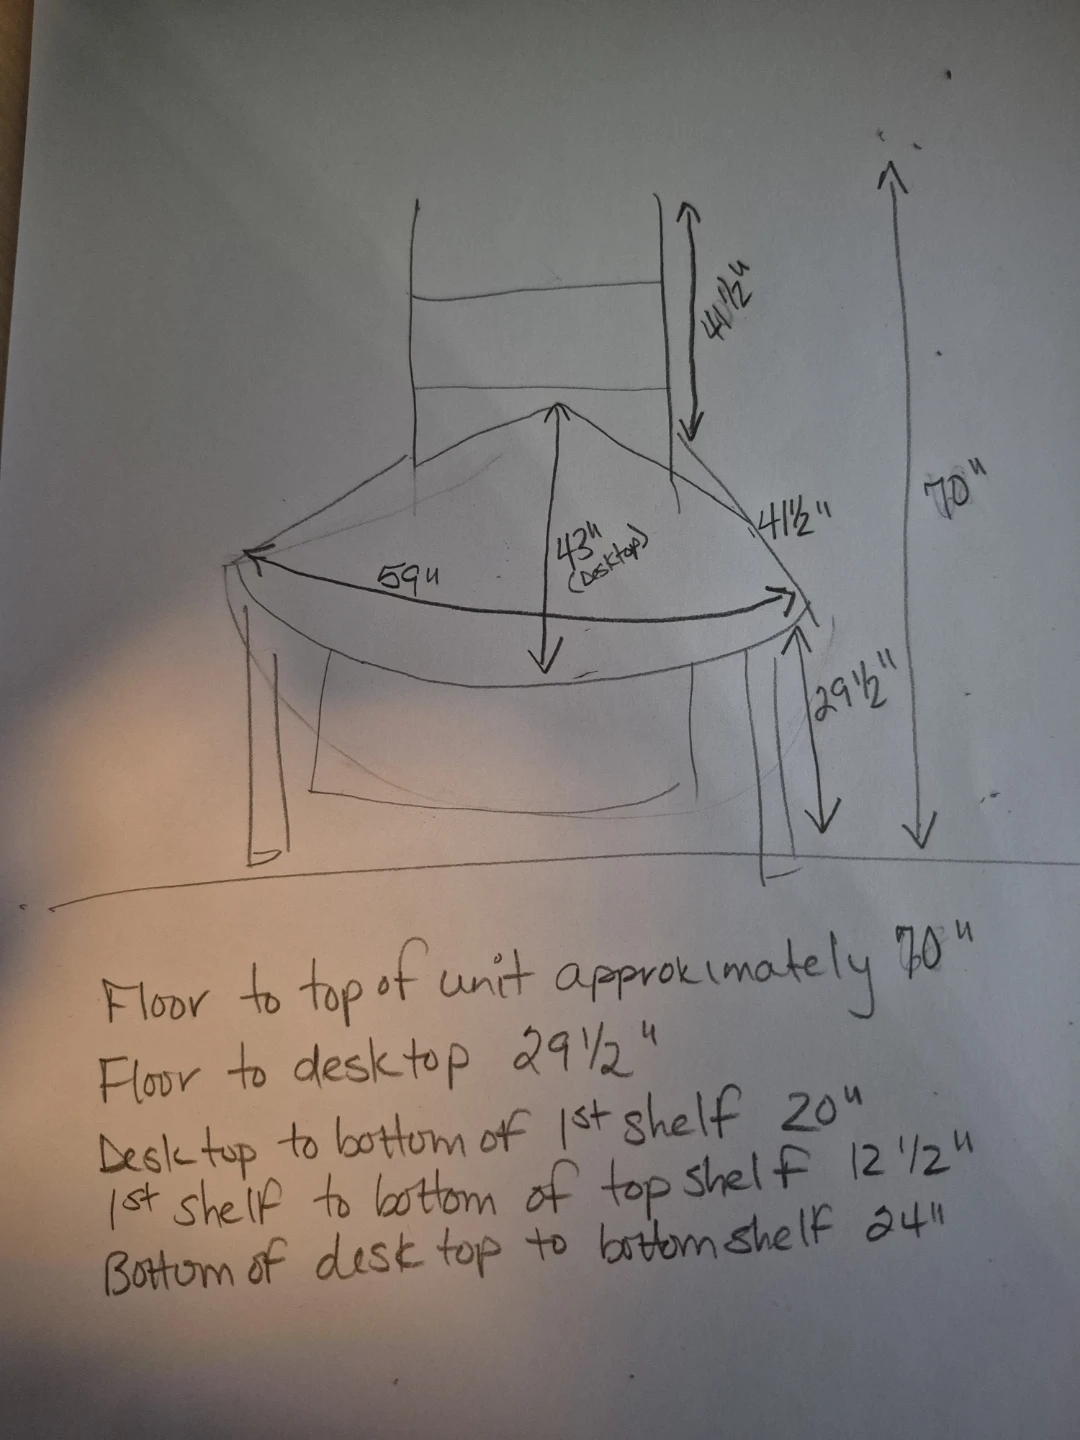 41½"
70"
41½"
43"
(Desktop)
59"
29½"
Floor to top of unit approximately 70"
Floor to desktop 29 1/2"
Desktop to bottom of 1st shelf 20"
1st shelf to bottom of top shelf 12 1/2"
Bottom of desktop to bottom shelf 24"